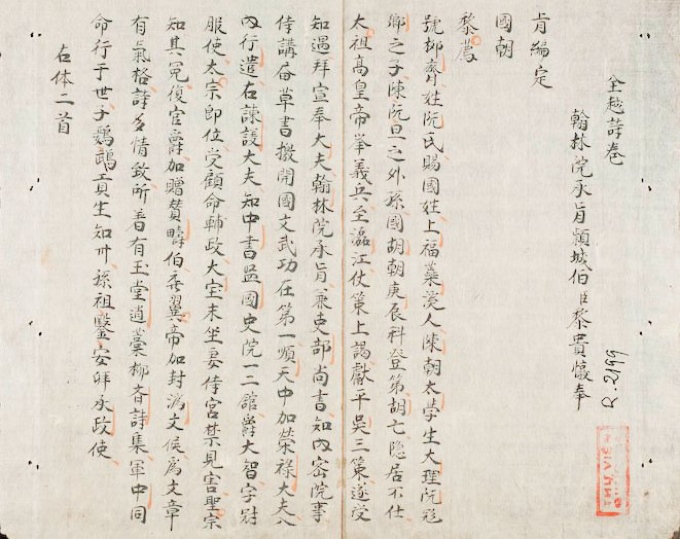 全越詩卷
翰林院承旨穎城伯臣黎貴惇奉
旨編定
國朝
黎廌
號抑齋姓阮氏賜國姓上福蘂溪人陳朝太學生大理阮飛
卿之子陳阮旦之外孫國胡朝庚辰科登第胡亡隱居不仕
太祖高皇帝挙義兵至瀘江仗策上謁獻平吳三策遂受
知遇拜宣奉大夫翰林院承旨兼吏部尚書知內密院事
侍講草書檄開國文武功在第一順天中加榮祿大夫入
內行遣右諫議大夫知中書監國史院一二舘爵大智字冠
服使太宗即位受顧命輔政大宝末坐妾侍宮禁見害聖宗
知其冤復官爵加贈賛疇伯襄翼帝加封濟文侯爲文章
有氣格詩多情致所著有玉堂遺藁抑斉詩集軍中同
命行于世子鸚鵡員生知州孫祖鑒安承政使
右体二首
R.2199